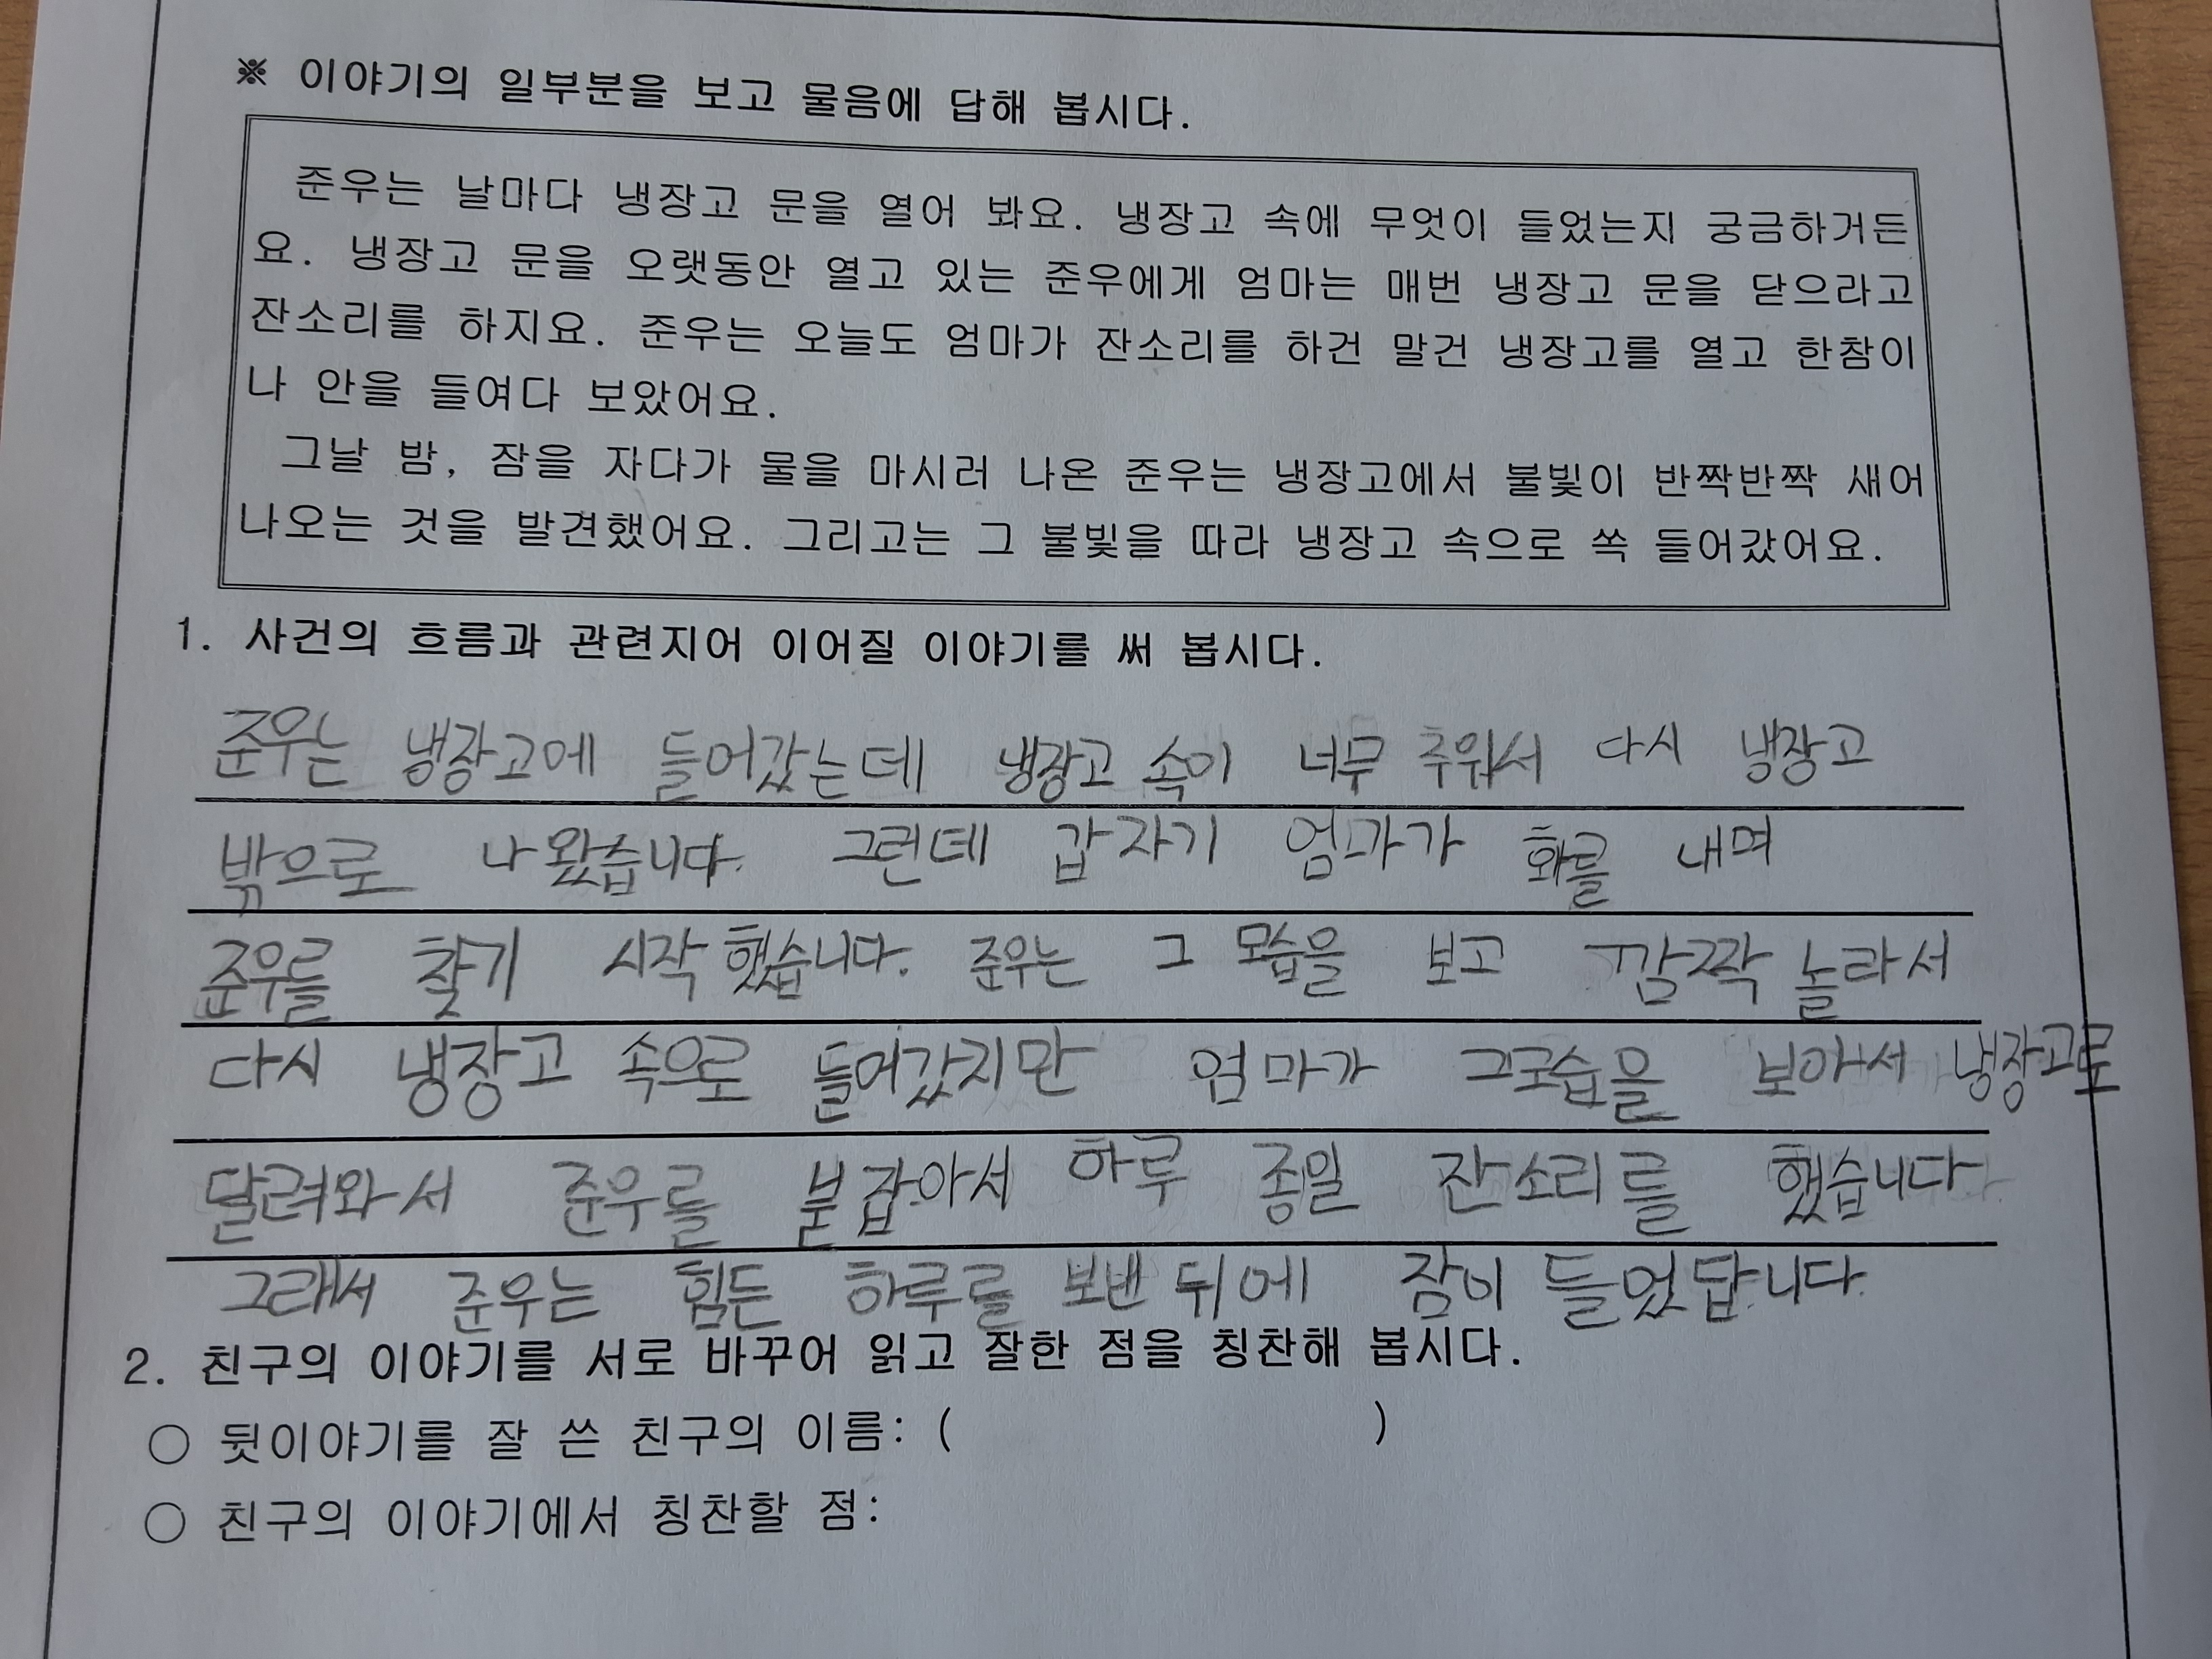 ※ 이야기의 일부분을 보고 물음에 답해 봅시다.
준우는 날마다 냉장고 문을 열어 봐요. 냉장고 속에 무엇이 들었는지 궁금하거든
요. 냉장고 문을 오랫동안 열고 있는 준우에게 엄마는 매번 냉장고 문을 닫으라고
잔소리를 하지요. 준우는 오늘도 엄마가 잔소리를 하건 말건 냉장고를 열고 한참이
나 안을 들여다 보았어요.
그날 밤, 잠을 자다가 물을 마시러 나온 준우는 냉장고에서 불빛이 반짝반짝 새어
나오는 것을 발견했어요. 그리고는 그 불빛을 따라 냉장고 속으로 쏙 들어갔어요.
1. 사건의 흐름과 관련지어 이어질 이야기를 써 봅시다.
준우는 냉장고에 들어갔는데 냉장고 속이 너무 추워서 다시 냉장고
밖으로 나왔습니다. 그런데 갑자기 엄마가 화를 내며
준우를 찾기 시작했습니다. 준우는 그 모습을 보고 깜짝 놀라서
다시 냉장고 속으로 들어갔지만 엄마가 그모습을 보아서 냉장고로
달려와서 준우를 붙잡아서 하루 종일 잔소리를 했습니다
그래서 준우는 힘든 하루를 보낸 뒤에 잠이 들었답니다.
2. 친구의 이야기를 서로 바꾸어 읽고 잘한 점을 칭찬해 봅시다.
○ 뒷이야기를 잘 쓴 친구의 이름: ( )
○ 친구의 이야기에서 칭찬할 점: